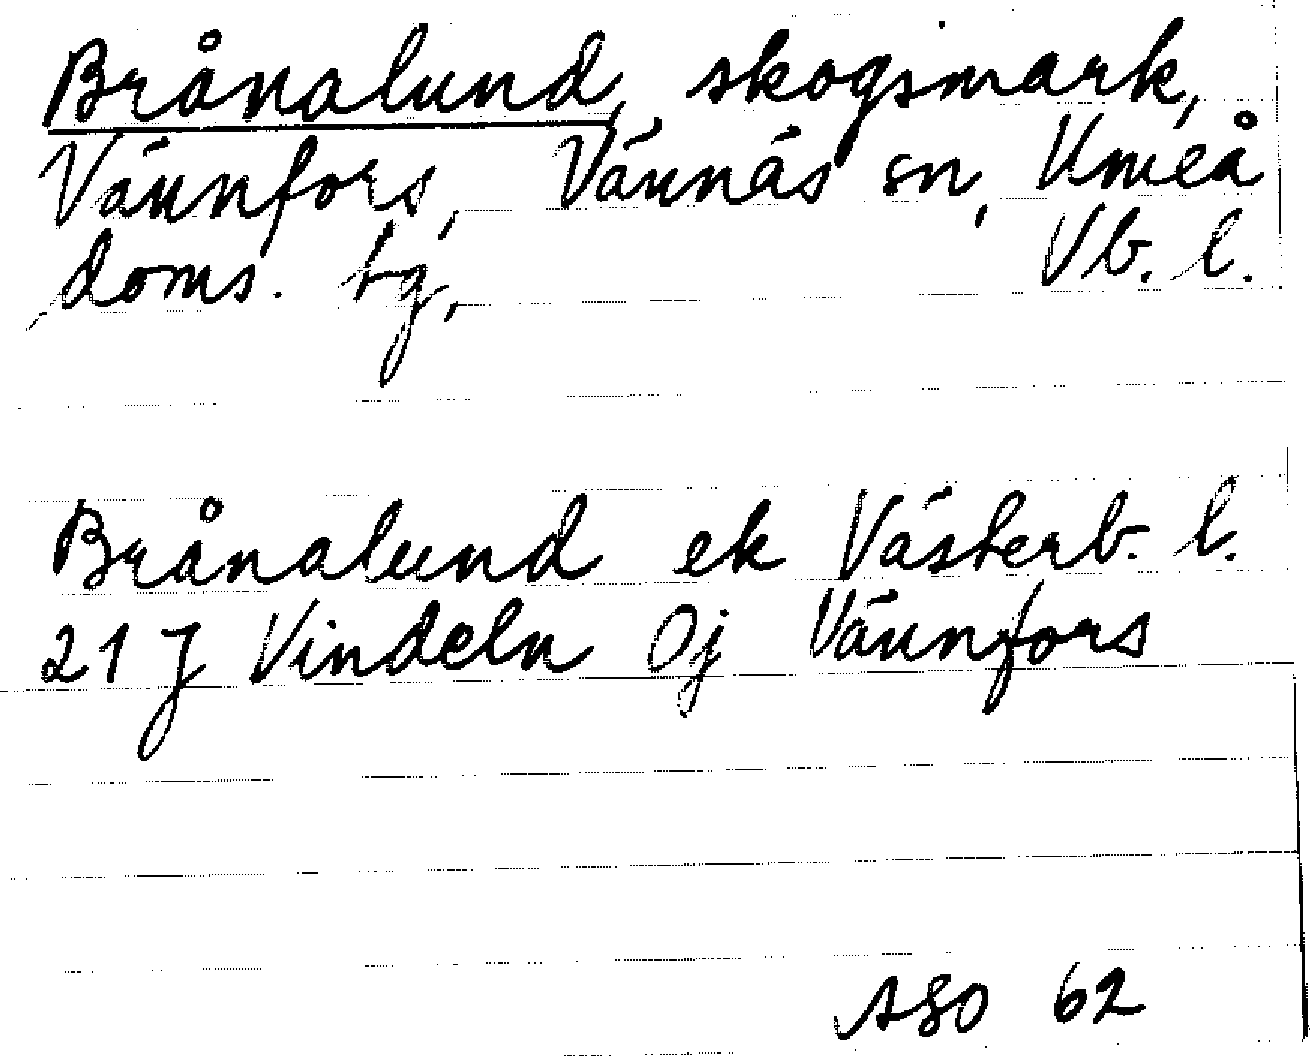 Brånalund, skogsmark,
Vännfors, Vännäs sn, Umeå
doms. tg, Vb. l.
Brånalund ek Västerb. l.
21 J Vindeln 0j Vännfors
ASO 62